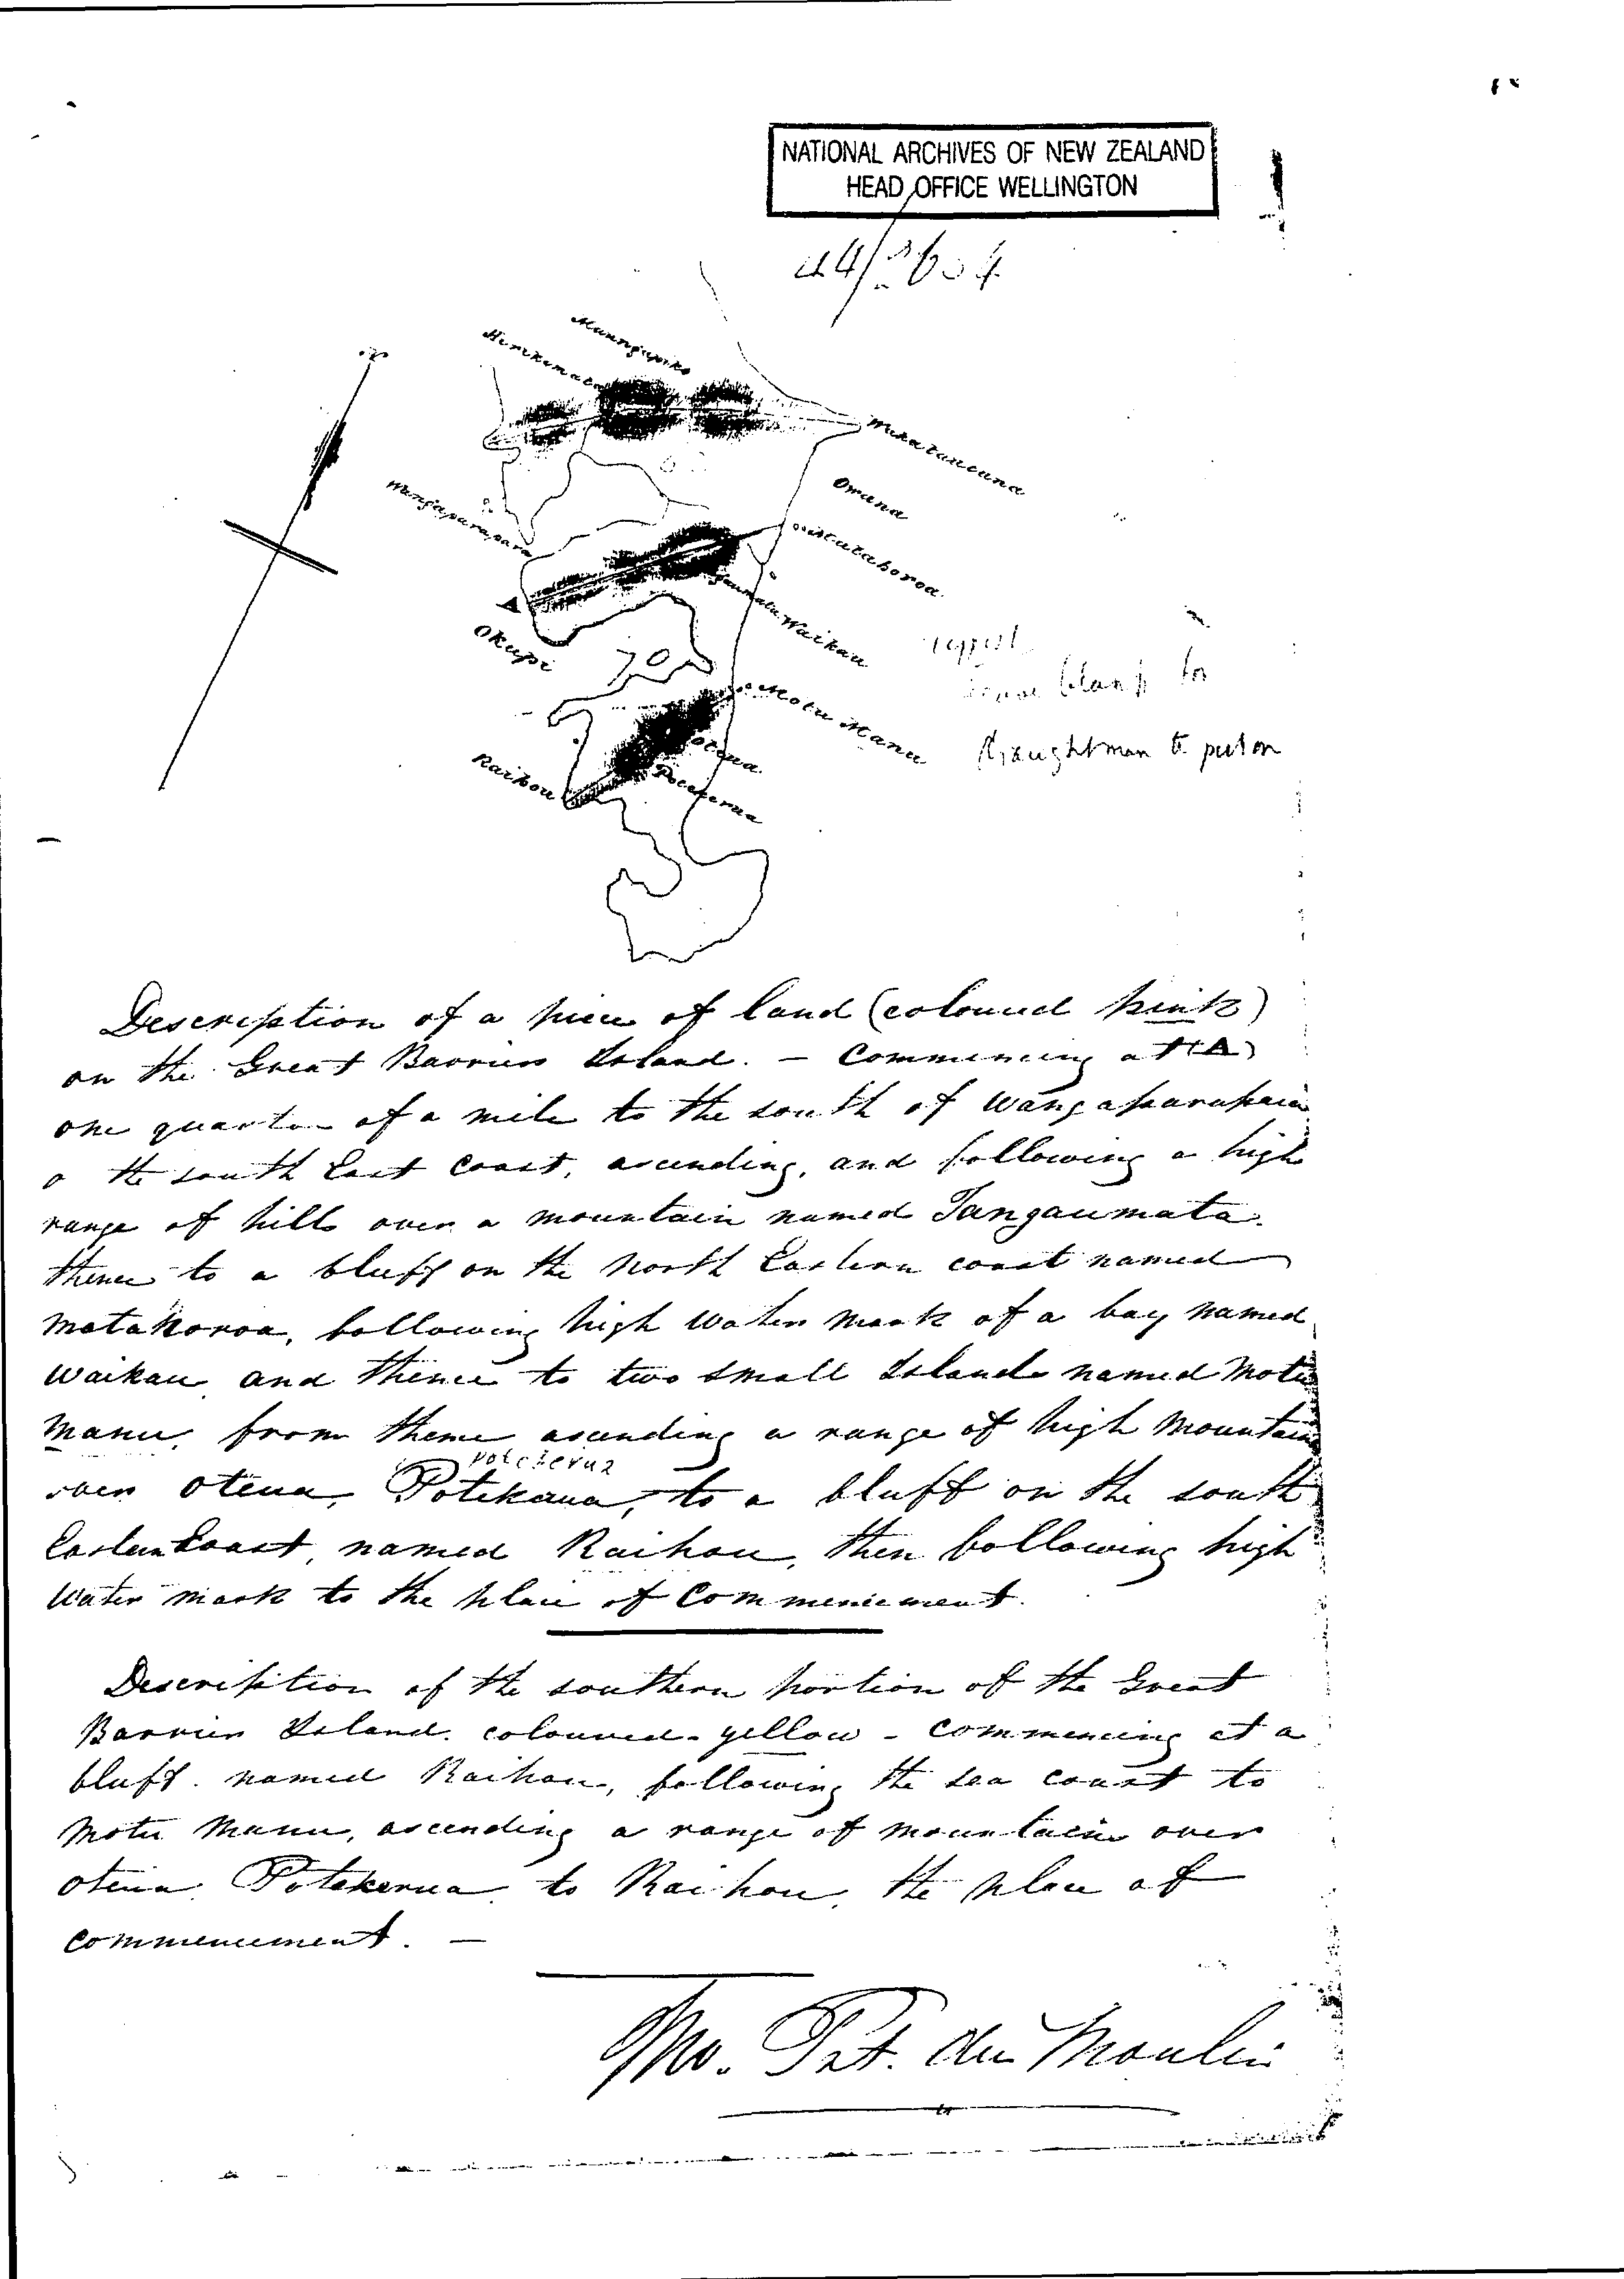 NATIONAL ARCHIVES OF NEW ZEALAND
HEAD OFFICE WELLINGTON
Omana
Waikau
Okupi
Motu Manu
Raihou
Draughtman to put on
Description of a piece of land (coloured pink)
on the Great Barrier Island. – Commencing at (A)
one quarter of a mile to the south of Wangaparapara
o the south East Coast, ascending, and following a high
range of hills over a mountain named Tangaumata.
thence to a bluff on the North Eastern coast named
Matahoroa, following high Water Mark of a bay named
Waikau and thence to two small Islands named Motu
Manu, from thence ascending a range of high Mountains
over Oteua, Potekaua, to a bluff on the south
Eastern Coast named Raihou, then following high
Water mark to the place of Commencement.
Description of the southern portion of the Great
Barrier Island. coloured yellow – Commencing at a
bluff. named Raihou, following the sea coast to
Motu Manu, ascending a range of Mountains over
Oteua Potekerua to Raihou, the place of
Commencement. —
Tho. Pat. du Moulin